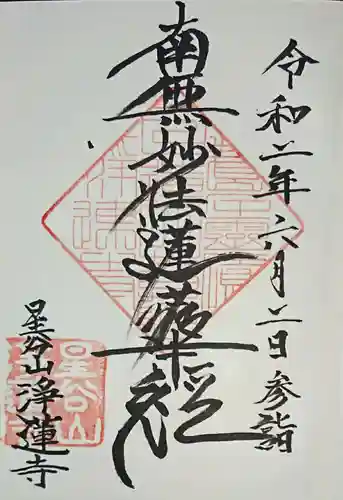 令和二年六月二日参詣
南無妙法蓮華経
星谷山
浄蓮寺
星谷山